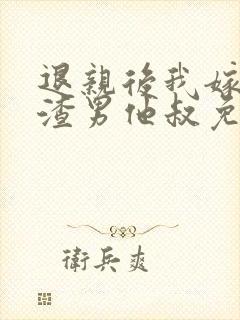 退親後我嫁
渣男他叔免
衛兵爽